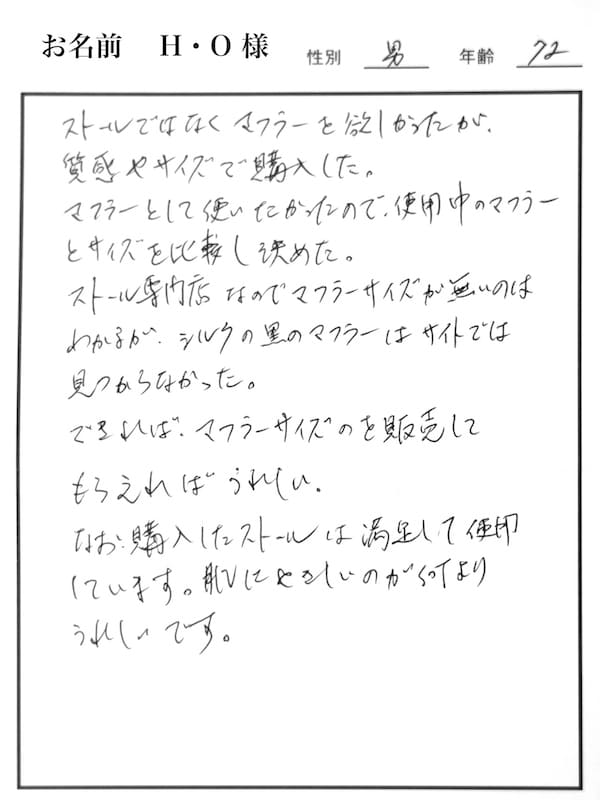 お名前 H・O様 性別 男 年齢 72
ストールではなくマフラーを欲しかったが、
質感やサイズで購入した。
マフラーとして使いたかったので、使用中のマフラー
とサイズを比較し決めた。
ストール専門店なのでマフラーサイズが無いのは
わかるが、シルクの黒のマフラーはサイトでは
見つからなかった。
できれば、マフラーサイズのを販売して
もらえればうれしい。
なお、購入したストールは満足して使用
しています。肌にやさしいのが何より
うれしいです。